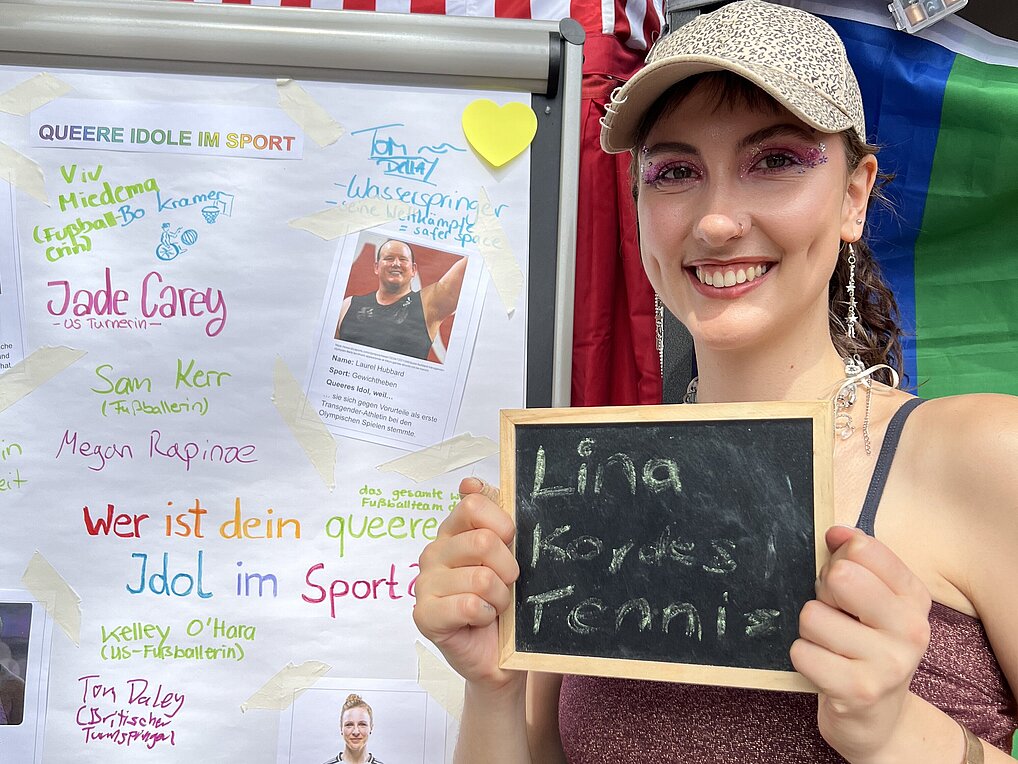 QUEERE IDOLE IM SPORT
Viv
Miedema
(Fußball-
erin)
Bo Kramer
Tom
Daley
- Wasserspringer
- seine Wettkämpfe
= safer space
Jade Carey
- US Turnerin -
Sam Kerr
(Fußballerin)
Megan Rapinoe
Name: Laurel Hubbard
Sport: Gewichtheben
Queeres Idol, weil...
... sie sich gegen Vorurteile als erste
Transgender-Athletin bei den
Olympischen Spielen stemmte.
das gesamte
Fußballteam
Wer ist dein queeres
Idol im Sport?
Kelley O'Hara
(US-Fußballerin)
Tom Daley
(Britischer
Turmspringer)
Lina
Kordes
Tennis